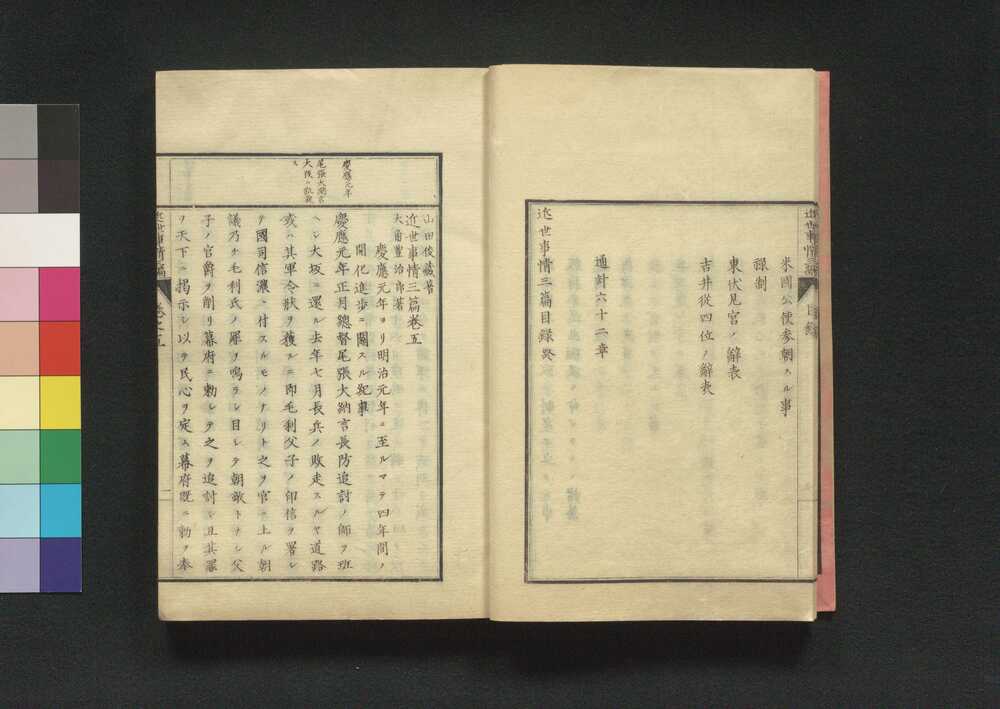 米國公使參朝スル事
祿制
東伏見宮ノ辭表
吉井從四位ノ辭表
通計六十二章
近世事情三篇目録終
慶應元年
尾張大納言
山田俊蔵著
大角豊治郎著
近世事情三篇巻五
慶應元年ヨリ明治元年ニ至ルマテ四年間ノ
開化進歩ニ關スル紀事
慶應元年正月總督尾張大納言長防追討ノ師ヲ班
ヘシ大坂ニ還ル去年七月長兵ノ敗走スルヤ道路
或ハ其軍令狀ヲ獲ルニ即毛利父子ノ印信ヲ署シ
テ國司信濃ニ付スルモノナリト之ヲ官ニ上ル朝
議乃チ毛利氏ノ罪ヲ鳴ラシ目シテ朝敵トナシ父
子ノ官爵ヲ削リ幕府ニ勅シテ之ヲ追討シ且其罪
ヲ天下ニ掲示シ以テ民心ヲ定ム幕府既ニ勅ヲ奉
近世事情三編
卷之五